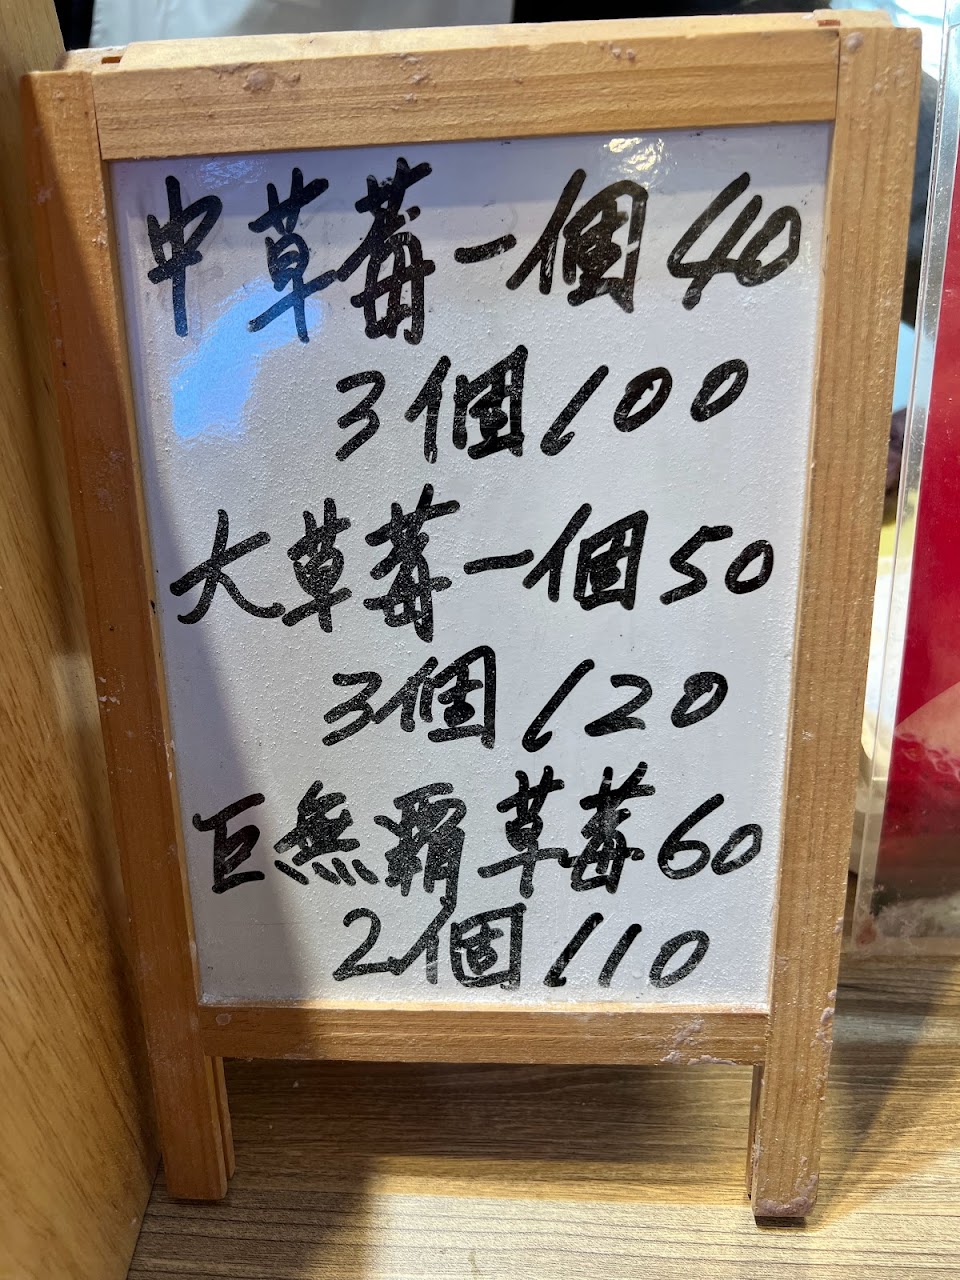 中草莓一個40
3個100
大草莓一個50
3個120
巨無霸草莓60
2個110